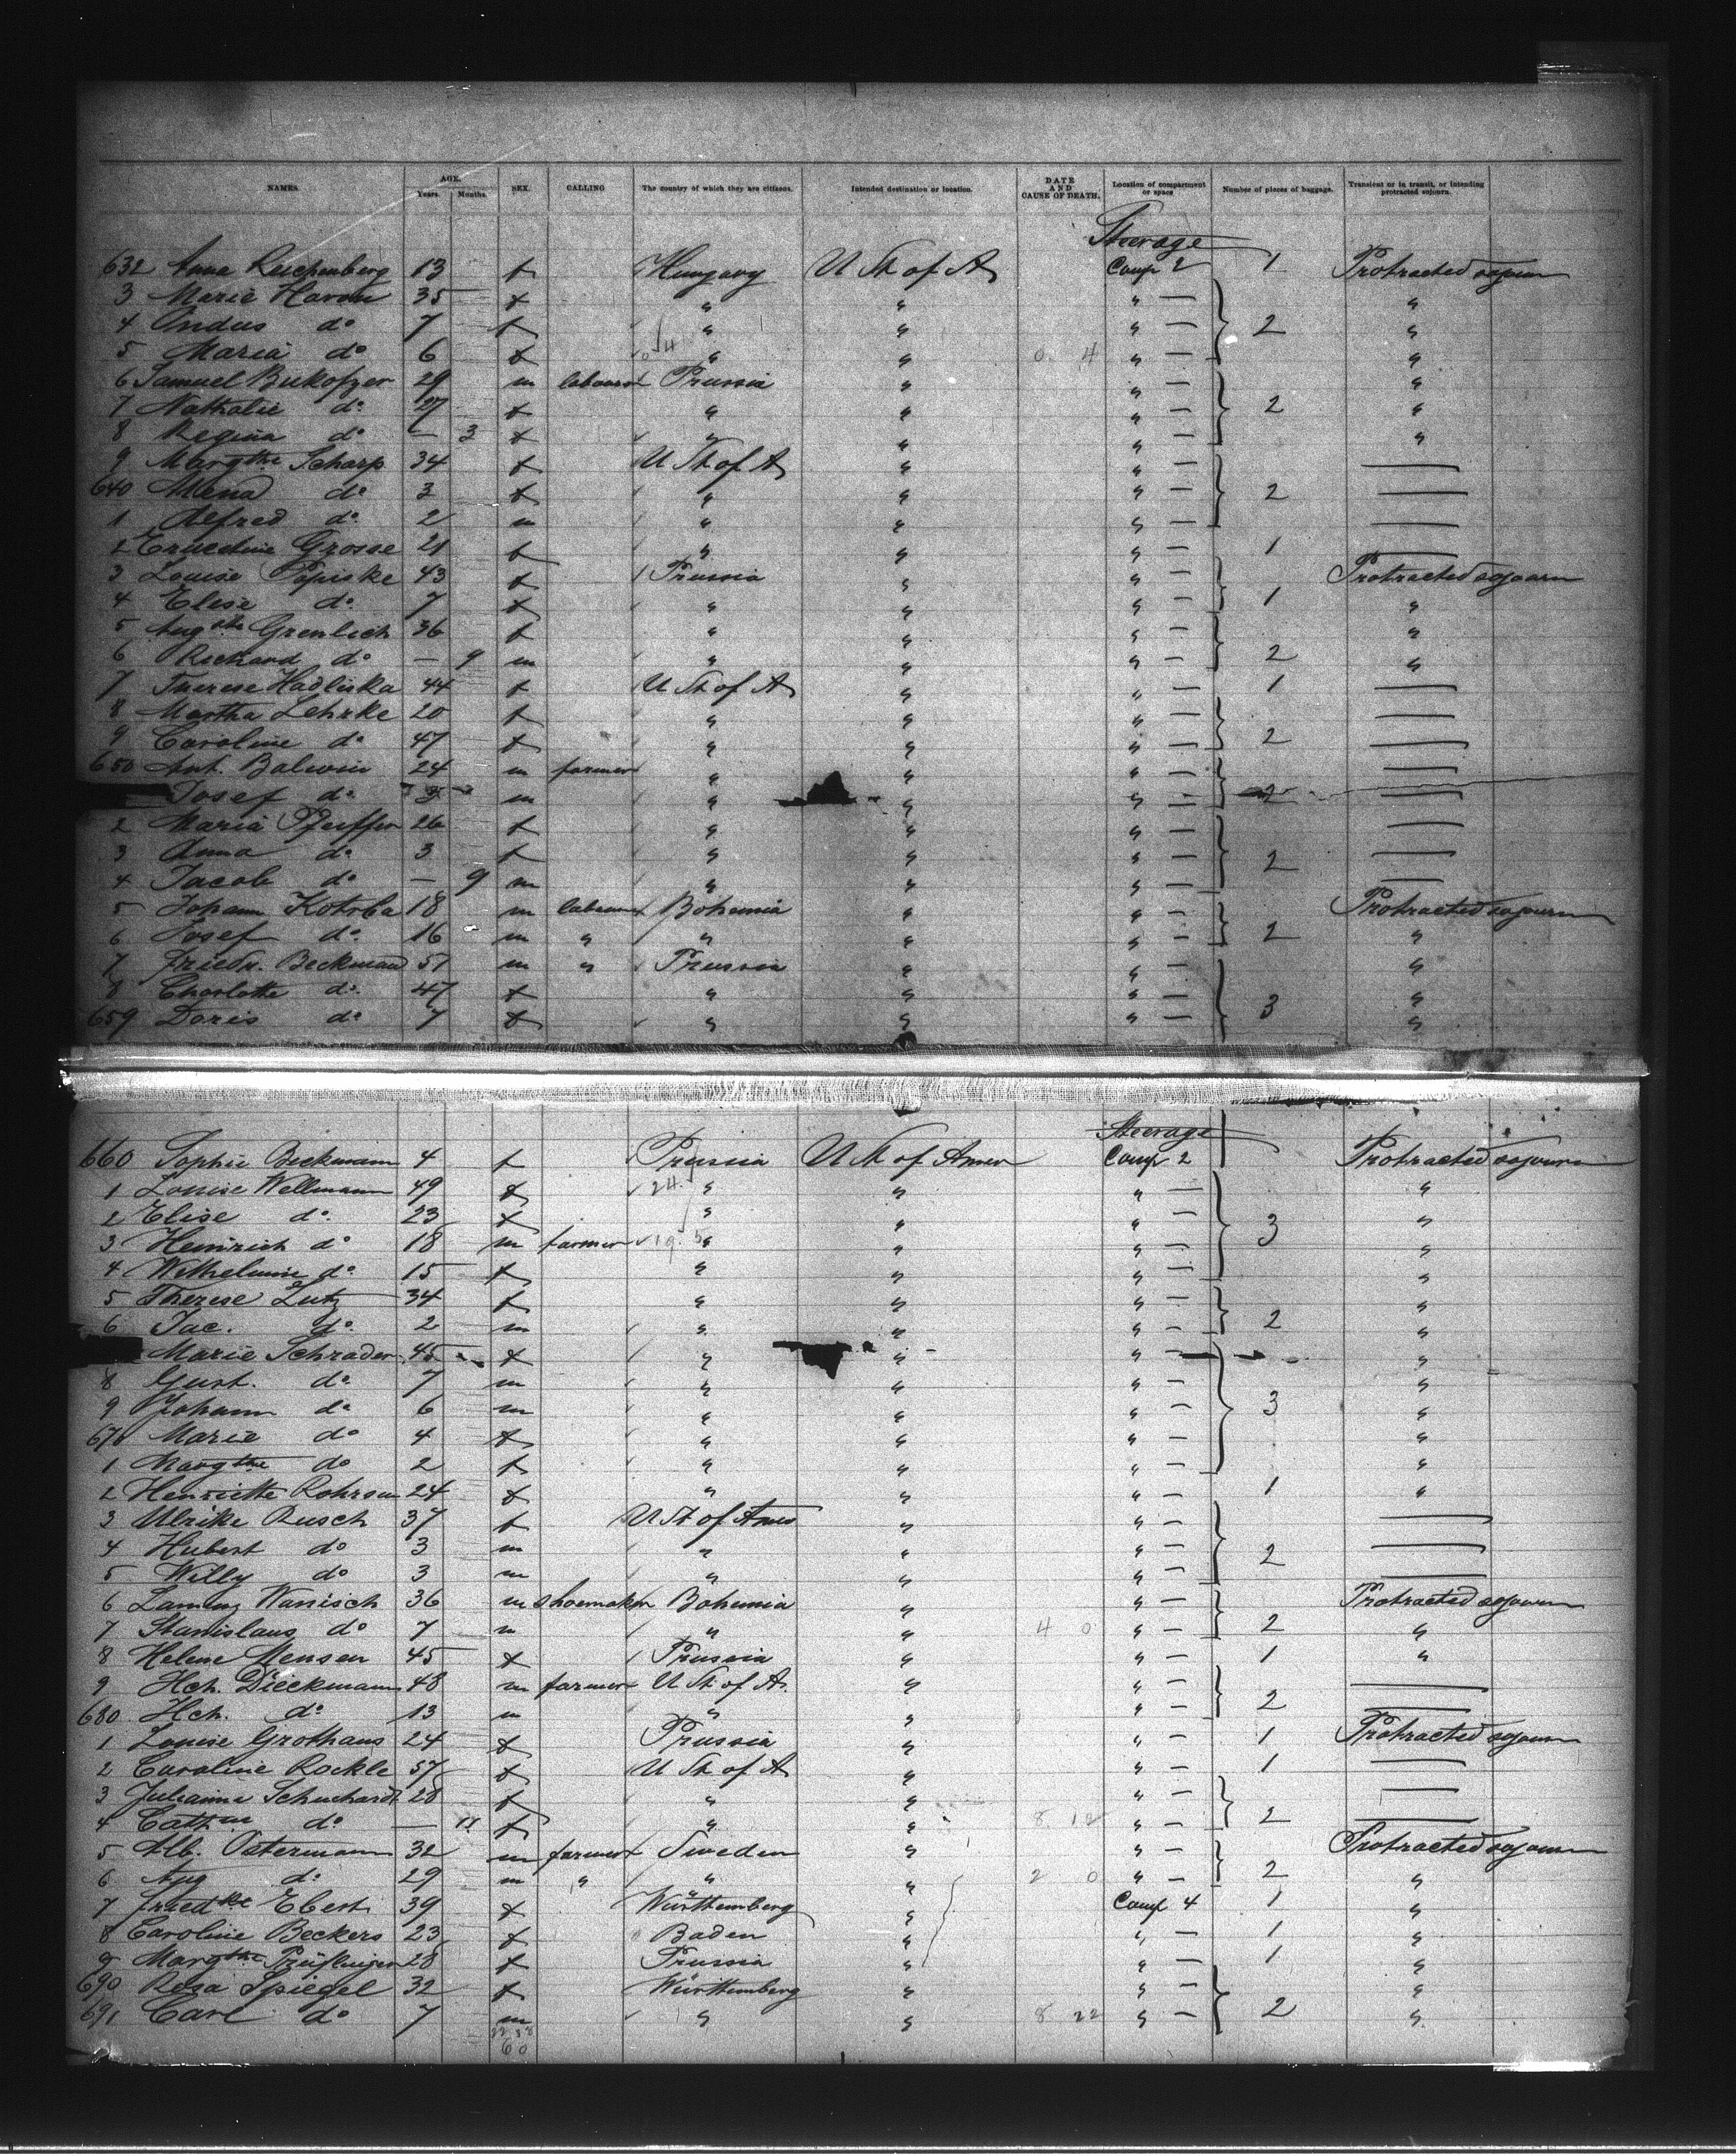 NAMES. AGE. Years. Months. SEX. CALLING The country of which they are citizens. Intended destination or location. DATE AND CAUSE OF DEATH. Location of compartment or space Number of pieces of baggage. Transient or in transit, or intending protracted sojourn.
Steerage
632 Anna Reichenberg 13 f Hungary U St of A Comp 2 1 Protracted sojourn
3 Marie 35 f " " " — "
4 Ondus do 7 f " " " — 2 "
5 Maria do 6 f " " " — "
6 Samuel Bukofzer 29 m labourer Prussia " " — "
7 Nathalie do 27 f " " " — 2 "
8 Regina do — 3 f " " " — "
9 Margthe Scharp 34 f U St of A " " — —
640 Mena do 3 f " " " — 2 —
1 Alfred do 2 m " " " — —
2 Ernestine Grosse 21 f " " " — 1 —
3 Louise Papiske 43 f Prussia " " — Protracted sojourn
4 Elise do 7 f " " " — 1 "
5 Augste Grenlich 36 f " " " — "
6 Richard do — 9 m " " " — 2 "
7 Therese Hadliska 44 f U St of A " " — 1 —
8 Martha Lehrke 20 f " " " — —
9 Caroline do 47 f " " " — 2 —
650 Ant. Balwin 24 m farmer " " " — —
Josef do m " " " — 2 —
2 Maria Pfeiffer 26 f " " " — —
3 Anna do 3 f " " " — 2 —
4 Jacob do — 9 m " " " — —
5 Johann Kotrba 18 m labourer Bohemia " " — Protracted sojourn
6 Josef do 16 m " " " " — 2 "
7 Friedr. Beckmann 51 m " Prussia " " — "
8 Charlotte do 47 f " " " — "
659 Doris do 7 f " " " — 3 "
Steerage
660 Sophie Beckmann 4 f Prussia U St of Amer Comp 2 Protracted sojourn
1 Louise Wellmann 49 f " " " — "
2 Elise do 23 f " " " — 3 "
3 Heinrich do 18 m farmer " " " — "
4 Wilhelmine do 15 f " " " — "
5 Therese Lutz 34 f " " " — "
6 Jac. do 2 m " " " — 2 "
Marie Schrader 45 f " " " — "
8 Gust. do 7 m " " " — "
9 Johann do 6 m " " " — 3 "
670 Marie do 4 f " " " — "
1 Margthe do 2 f " " " — "
2 Henriette 24 f " " " — 1 "
3 Ulrike Rusch 37 f U St of Amer " " — —
4 Hubert do 3 m " " " — 2 —
5 Willy do 3 m " " " — —
6 Wanisch 36 m shoemaker Bohemia " " — Protracted sojourn
7 Stanislaus do 7 m " " 4 0 " — 2 "
8 Helene Mensen 45 f Prussia " " — 1 "
9 Hch. Dieckmann 48 m farmer U St of A. " " — —
680 Hch. do 13 m " " " — 2 —
1 Louise Grothaus 24 f Prussia " " — 1 Protracted sojourn
2 Caroline Rockle 57 f U St of A " " — 1 —
3 Julianna Schuchardt 28 f " " " — —
4 Cathne do — 11 f " " 8 12 " — 2 —
5 Alb. Ostermann 32 m farmer Sweden " " — Protracted sojourn
6 Aug do 29 m " " " 2 0 " — 2 "
7 Friedke Ebert 39 f Württemberg " Comp 4 1 "
8 Caroline Beckers 23 f Baden " " — 1 "
9 Margthe 28 f Prussia " " — 1 "
690 Rosa Spiegel 32 f Württemberg " " — "
691 Carl do 7 m " " 8 22 " — 2 "
60